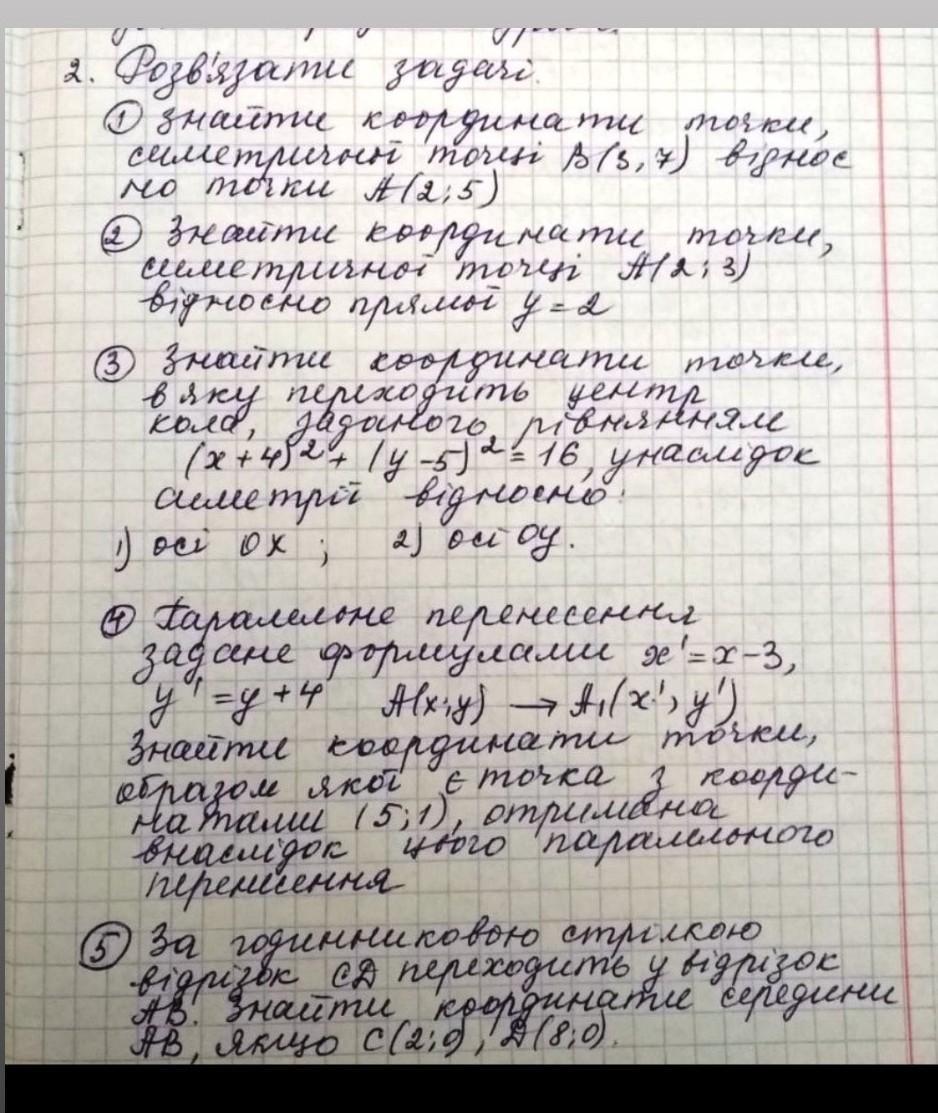 2. Розв'язати задачі.
① Знайти координати точки,
симетричної точці В(3,7) віднос
но точки А(2;5)
② Знайти координати точки,
симетричної точці А(2;3)
відносно прямої y=2
③ Знайти координати точки,
в яку переходить центр
кола, заданого рівнянням
(x+4)² + (y-5)² = 16, унаслідок
симетрії відносно:
1) осі OX ; 2) осі OY.
④ Паралельне перенесення
задане формулами x'=x-3,
y'=y+4 A(x;y) → A₁(x'; y')
Знайти координати точки,
образом якої є точка з коорди-
натами (5;1), отримана
внаслідок цього паралельного
перенесення
⑤ За годинниковою стрілкою
відрізок CD переходить у відрізок
AB. Знайти координати середини
AB, якщо C(2;0), D(8;0).